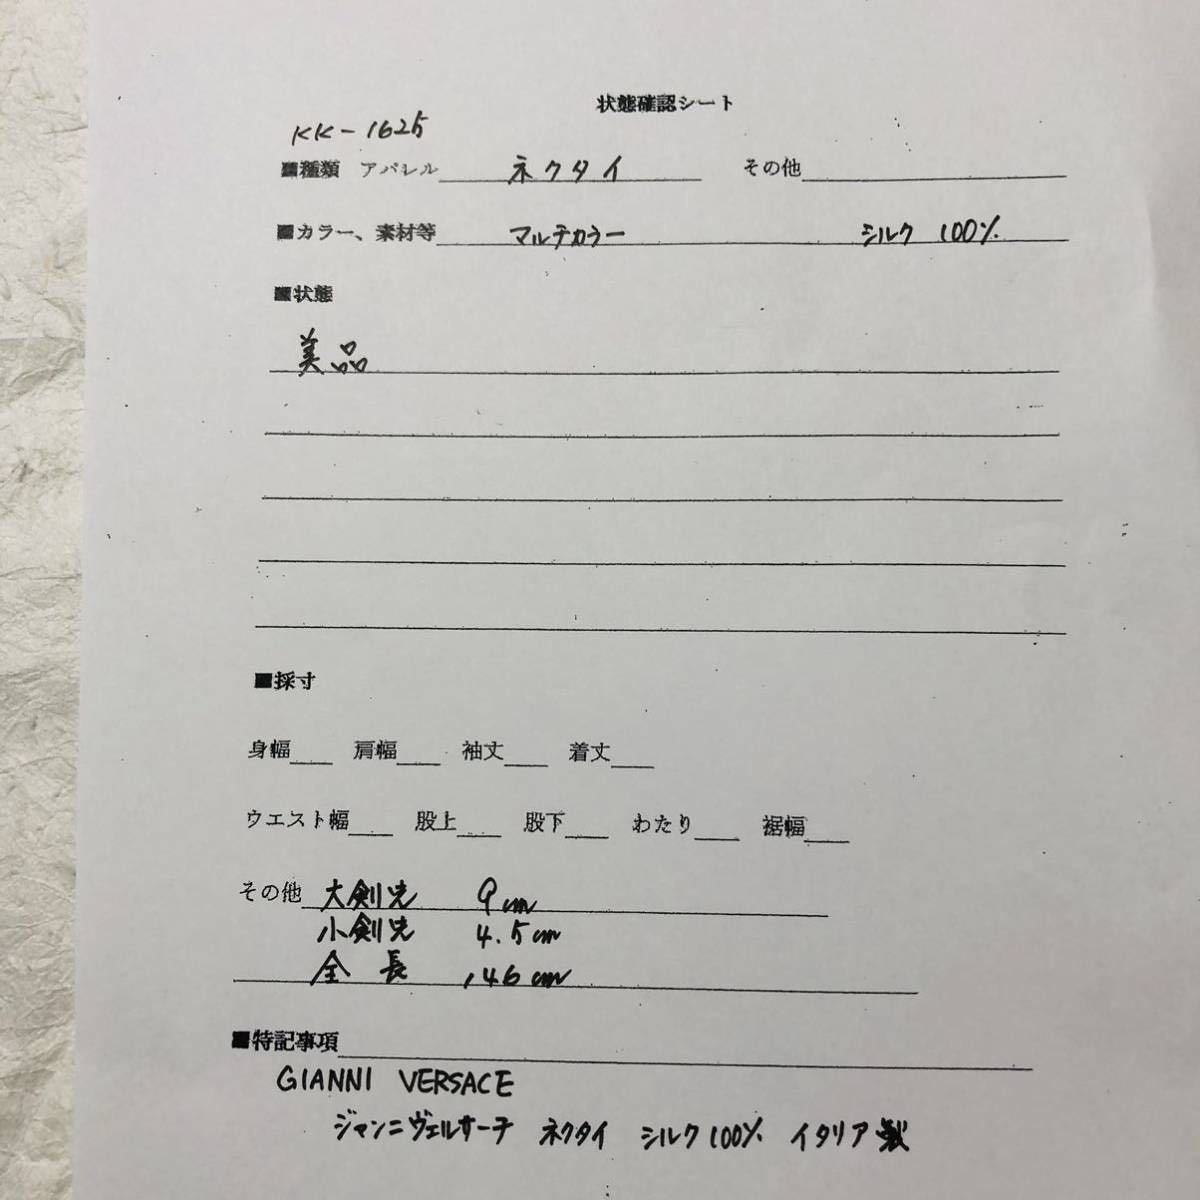 状態確認シート
KK-1625
■種類 アパレル ネクタイ その他
■カラー、素材等 マルチカラー シルク 100%
■状態
美品
■採寸
身幅 肩幅 袖丈 着丈
ウエスト幅 股上 股下 わたり 裾幅
その他 大剣先 9cm
小剣先 4.5cm
全長 146cm
■特記事項
GIANNI VERSACE
ジャンニヴェルサーチ ネクタイ シルク100% イタリア製